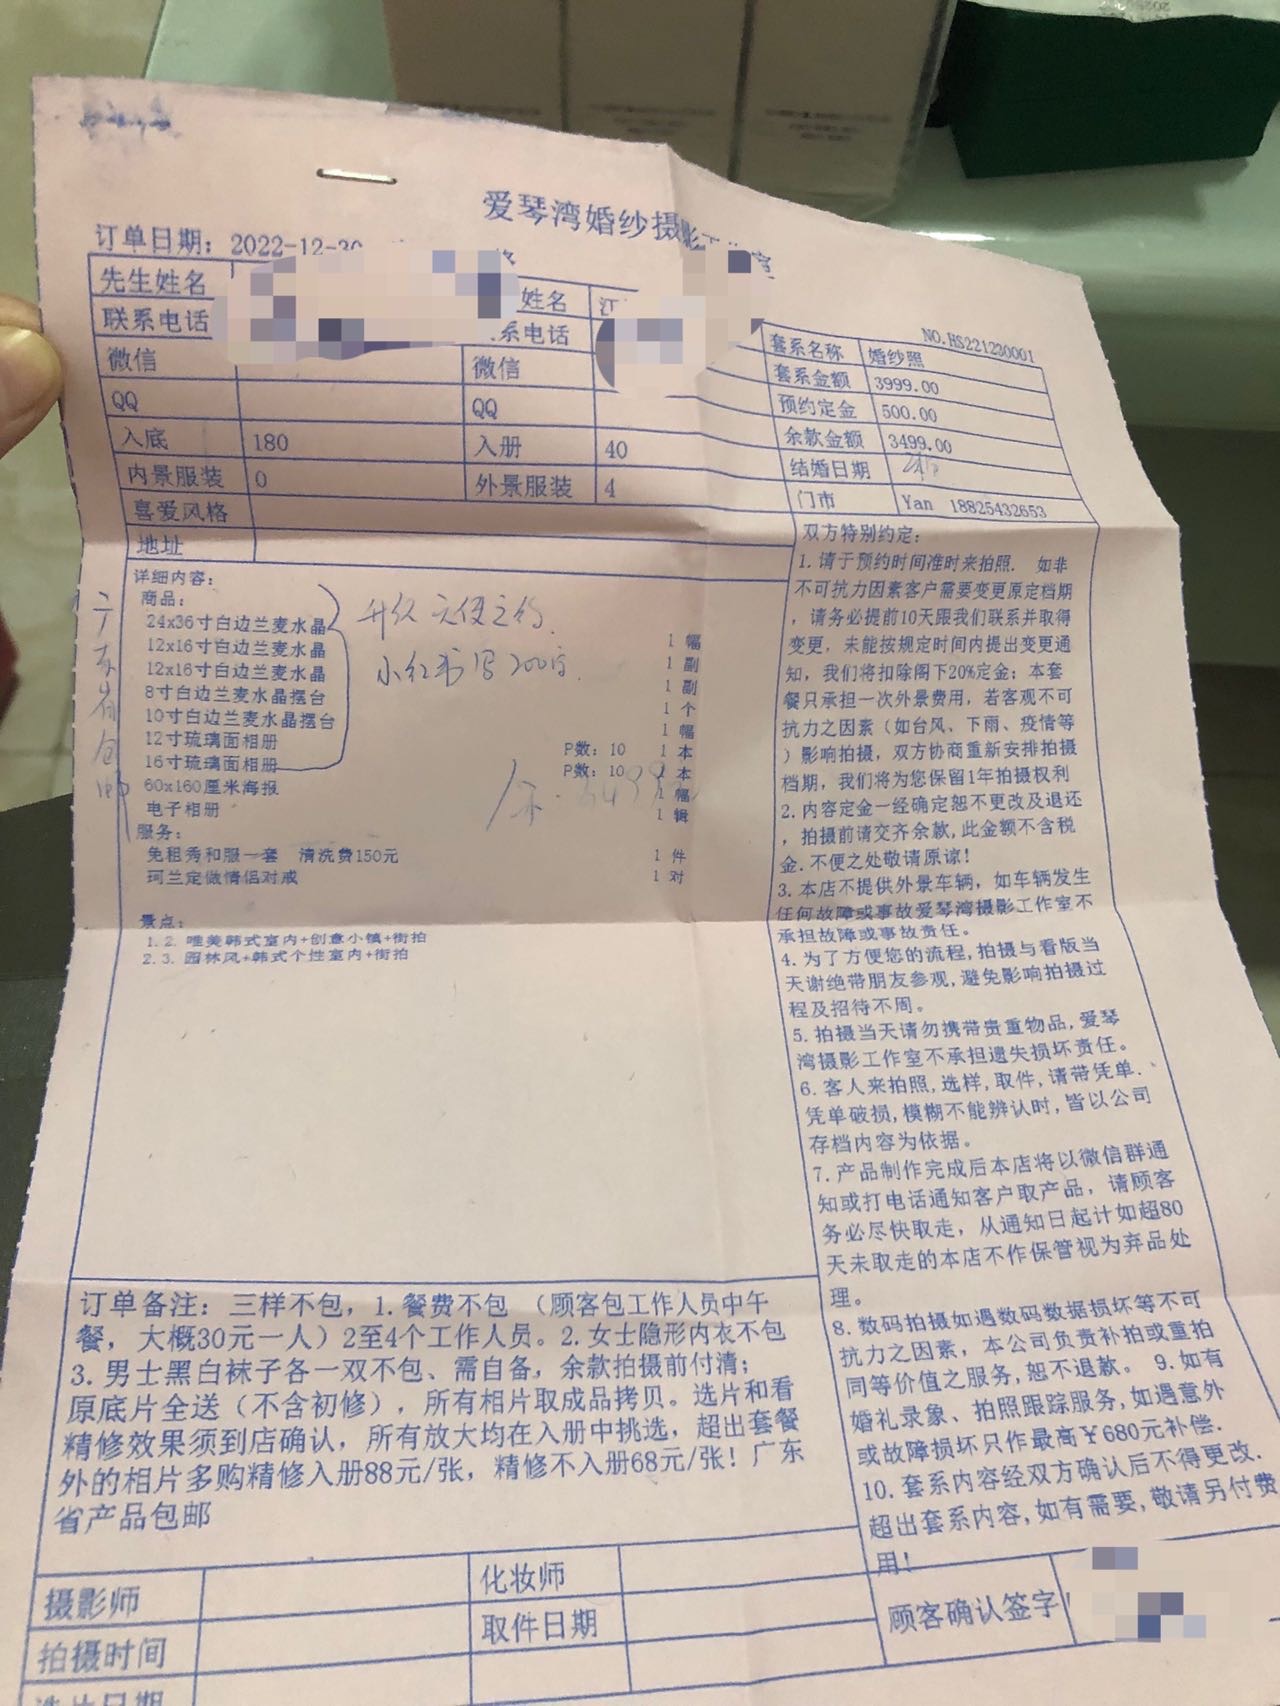 爱琴湾婚纱摄影工作室
订单日期：2022-12-30
NO.HS221230001
先生姓名
姓名 江
联系电话
系电话
微信 微信
QQ QQ
入底 180 入册 40
内景服装 0 外景服装 4
喜爱风格
地址
套系名称 婚纱照
套系金额 3999.00
预约定金 500.00
余款金额 3499.00
结婚日期
门市 Yan 18825432653
详细内容：
商品：
24x36寸白边兰麦水晶 1 幅
12x16寸白边兰麦水晶 1 副
12x16寸白边兰麦水晶 1 副
8寸白边兰麦水晶摆台 1 个
10寸白边兰麦水晶摆台 1 幅
12寸琉璃面相册 P数：10 1 本
16寸琉璃面相册 P数：10 1 本
60x160厘米海报 1 幅
电子相册 1 辑
升级 天使之约
小红书写200字
广东省包邮
服务：
免租秀和服一套 清洗费150元 1 件
珂兰定做情侣对戒 1 对
景点：
1.2. 唯美韩式室内+创意小镇+街拍
2.3. 园林风+韩式个性室内+街拍
双方特别约定：
1.请于预约时间准时来拍照. 如非
不可抗力因素客户需要变更原定档期
，请务必提前10天跟我们联系并取得
变更，未能按规定时间内提出变更通
知，我们将扣除阁下20%定金；本套
餐只承担一次外景费用，若客观不可
抗力之因素（如台风、下雨、疫情等
）影响拍摄，双方协商重新安排拍摄
档期，我们将为您保留1年拍摄权利
2.内容定金一经确定恕不更改及退还
，拍摄前请交齐余款,此金额不含税
金.不便之处敬请原谅!
3.本店不提供外景车辆，如车辆发生
任何故障或事故爱琴湾摄影工作室不
承担故障或事故责任。
4.为了方便您的流程,拍摄与看版当
天谢绝带朋友参观,避免影响拍摄过
程及招待不周。
5.拍摄当天请勿携带贵重物品,爱琴
湾摄影工作室不承担遗失损坏责任。
6.客人来拍照,选样,取件,请带凭单.
凭单破损,模糊不能辨认时,皆以公司
存档内容为依据。
7.产品制作完成后本店将以微信群通
知或打电话通知客户取产品，请顾客
务必尽快取走，从通知日起计如超80
天未取走的本店不作保管视为弃品处
理。
8.数码拍摄如遇数码数据损坏等不可
抗力之因素，本公司负责补拍或重拍
同等价值之服务,恕不退款。 9.如有
婚礼录象、拍照跟踪服务,如遇意外
或故障损坏只作最高￥680元补偿.
10.套系内容经双方确认后不得更改.
超出套系内容,如有需要,敬请另付费
用!
订单备注：三样不包，1.餐费不包 （顾客包工作人员中午
餐，大概30元一人）2至4个工作人员。2.女士隐形内衣不包
3.男士黑白袜子各一双不包、需自备，余款拍摄前付清；
原底片全送（不含初修），所有相片取成品拷贝。选片和看
精修效果须到店确认，所有放大均在入册中挑选，超出套餐
外的相片多购精修入册88元/张，精修不入册68元/张！广东
省产品包邮
摄影师 化妆师
拍摄时间 取件日期
选片日期
顾客确认签字